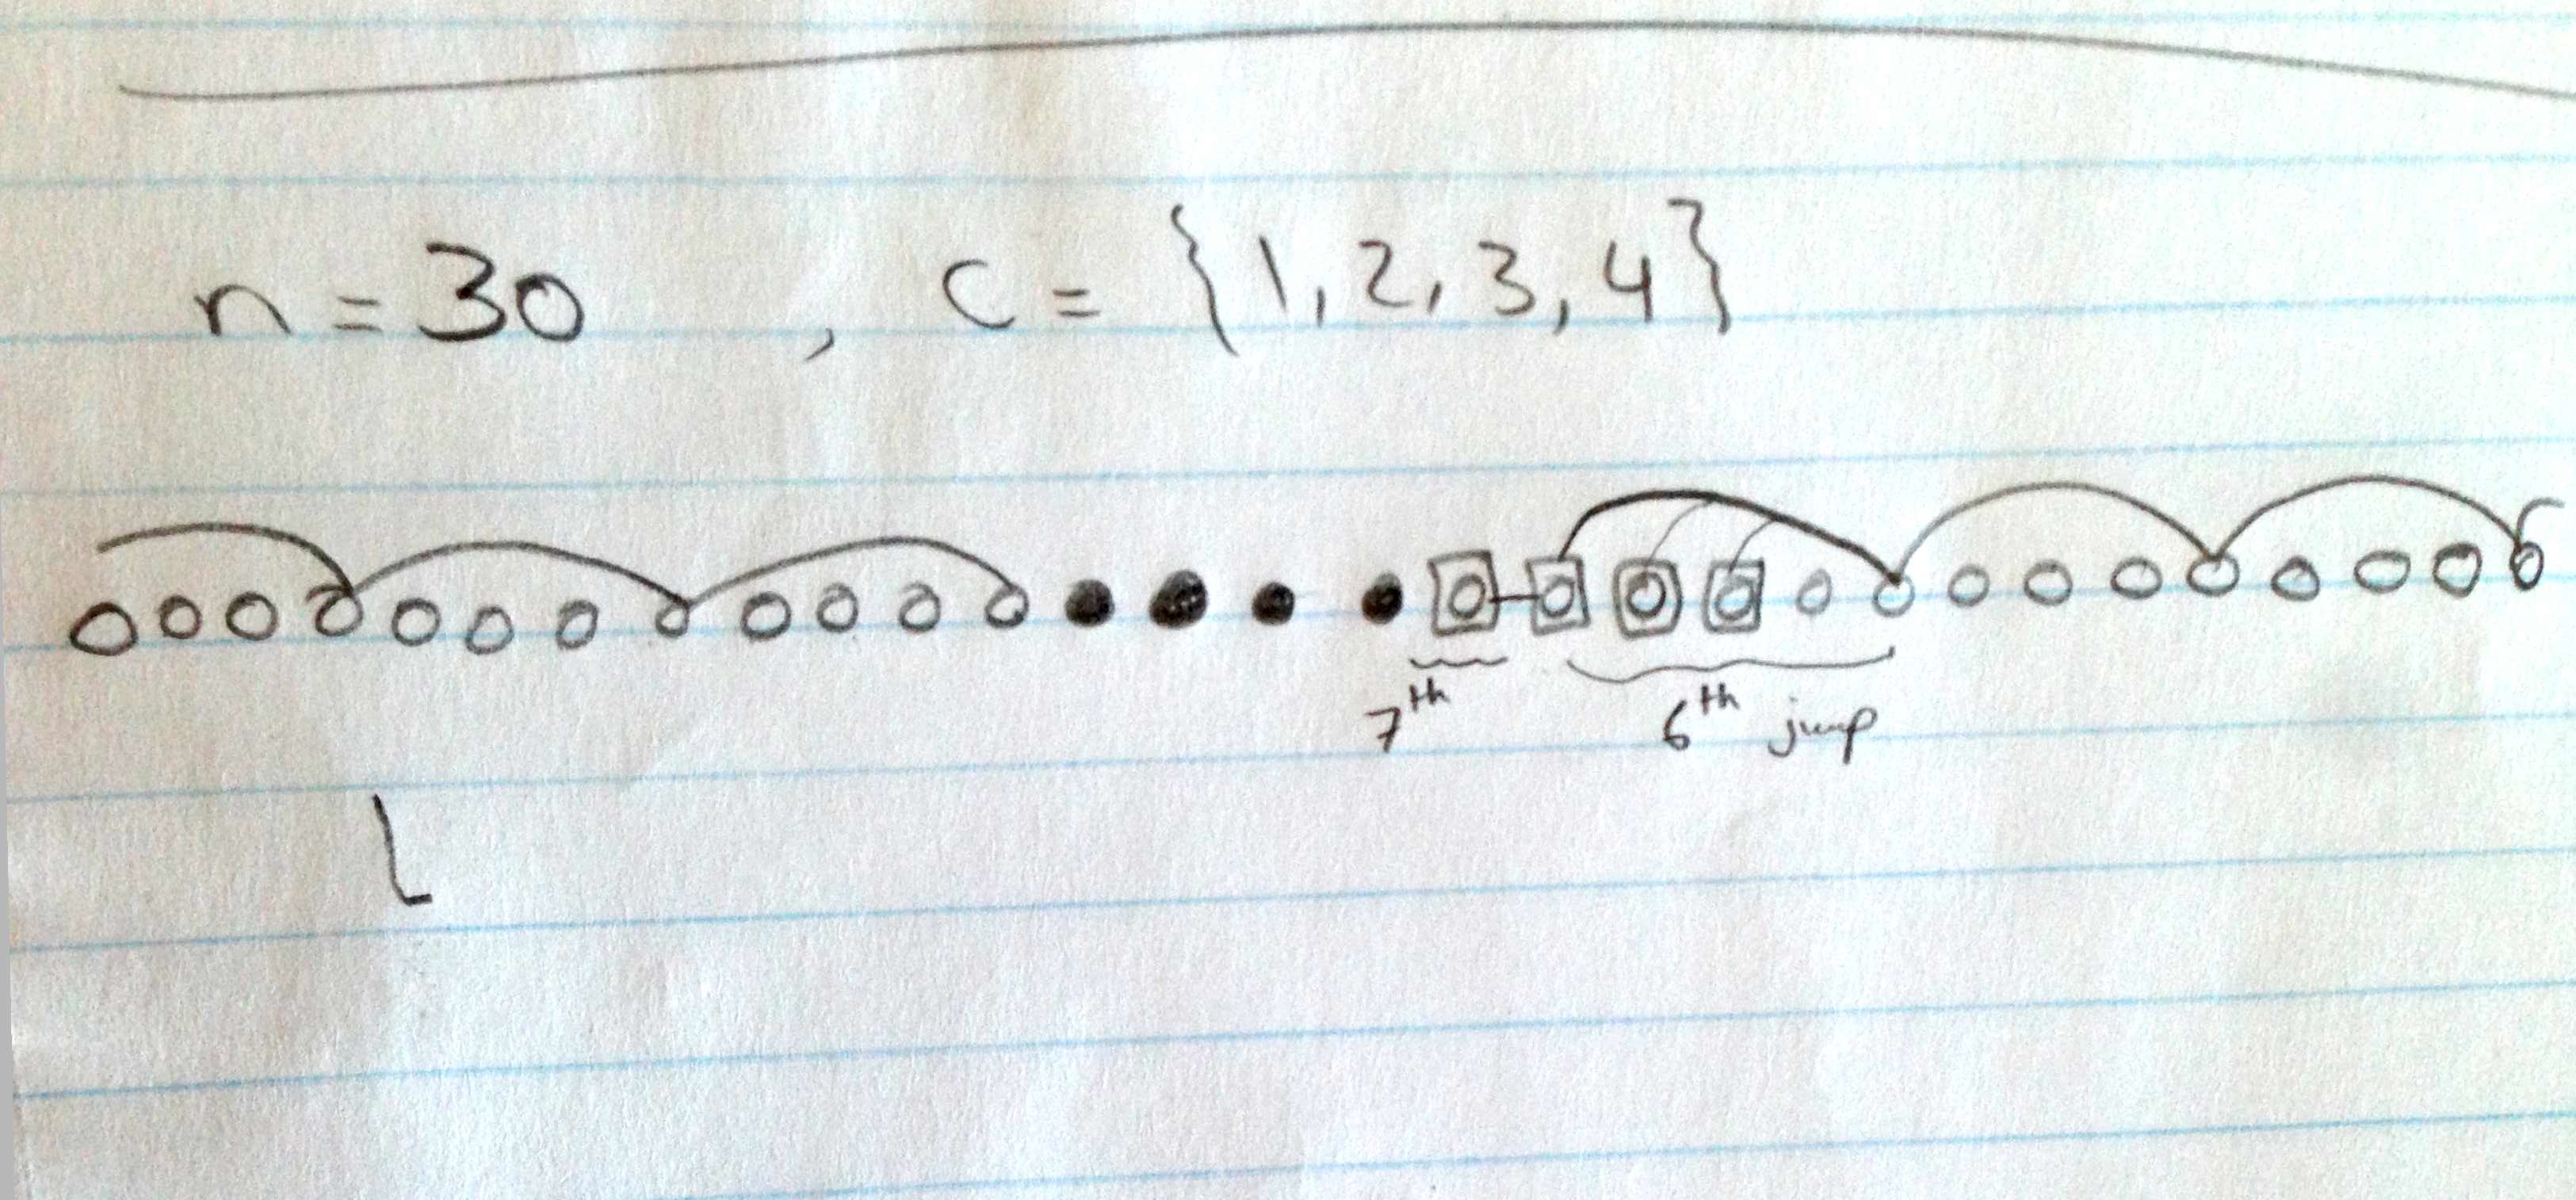 n = 30 , C = {1, 2, 3, 4}
7th 6th jump